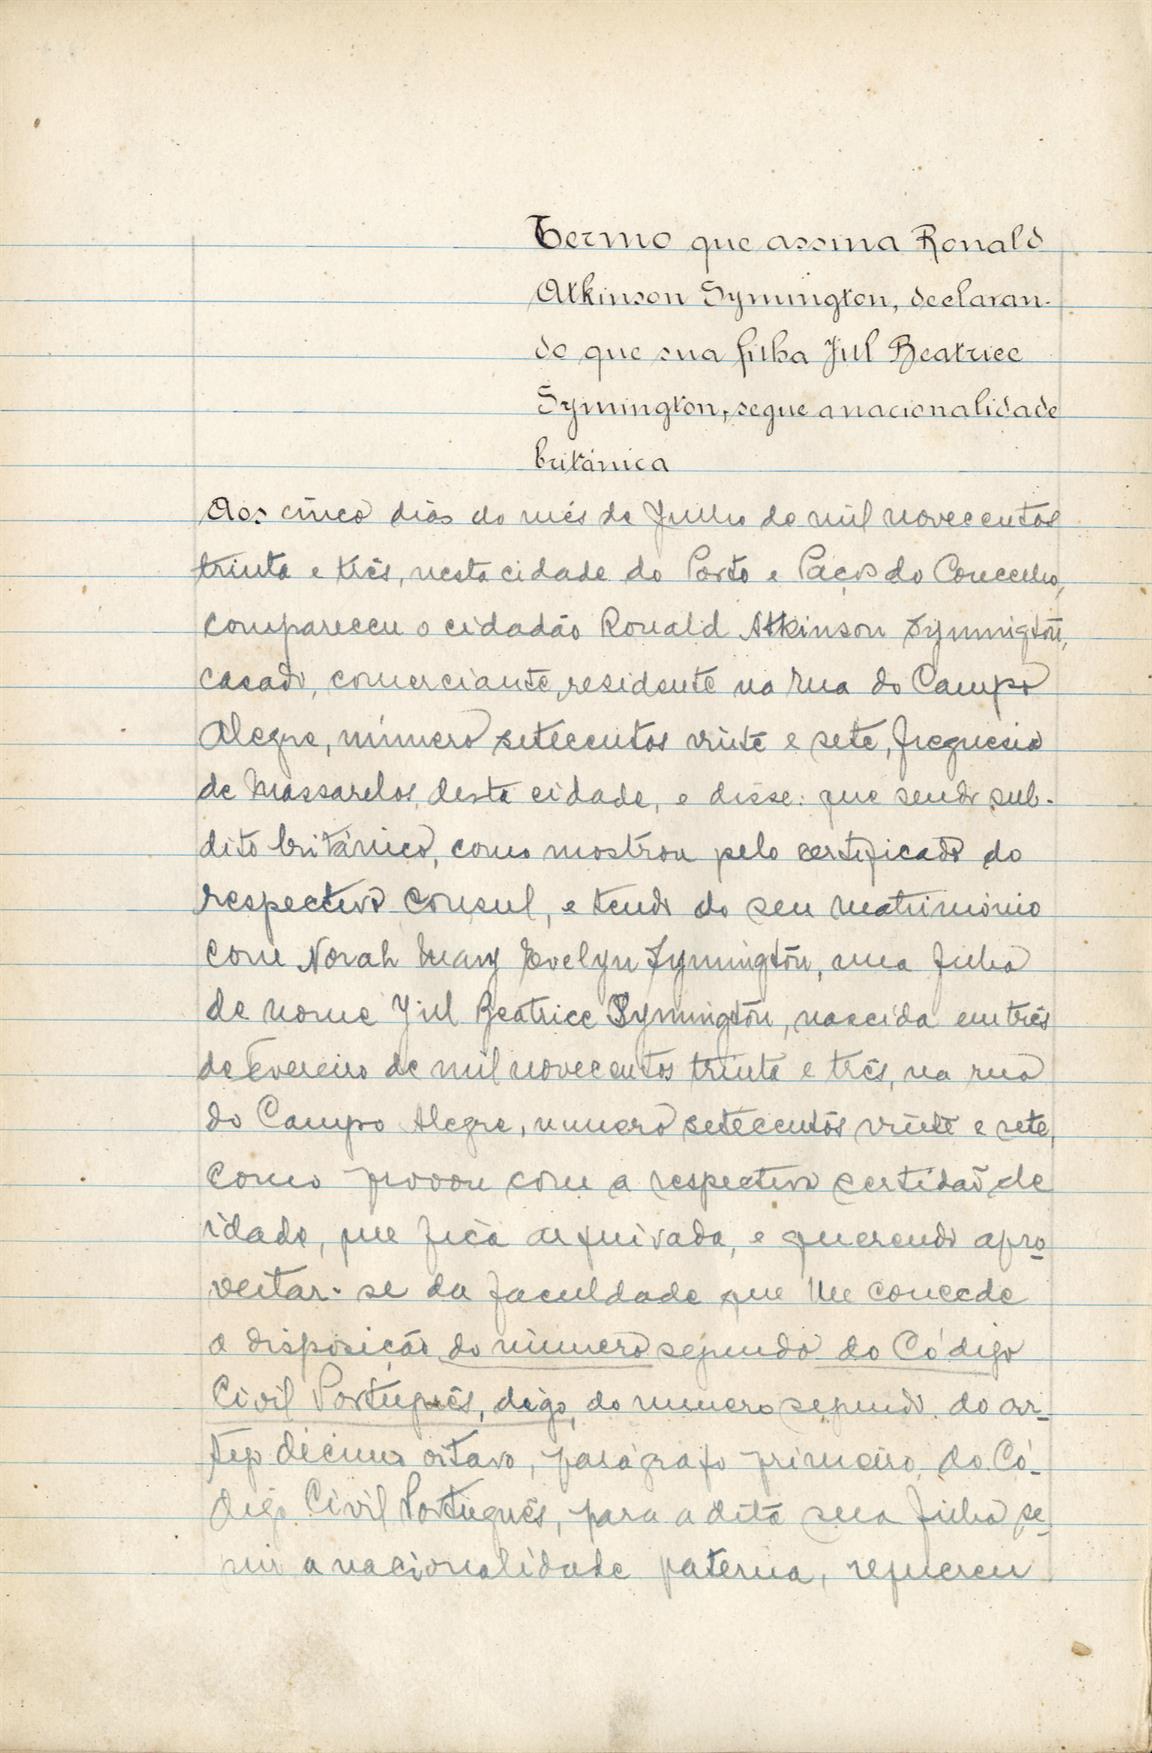 Termo que assina Ronald
Atkinson Symington, declaran-
do que sua filha Jill Beatrice
Symington, segue a nacionalidade
británica
Aos cinco dias do mês de Julho de mil novecentos
trinta e três, nesta cidade do Porto e Paços do Concelho,
compareceu o cidadão Ronald Atkinson Symington,
casado, comerciante, residente na rua do Campo
Alegre, número setecentos vinte e sete, freguesia
de Massarelos, desta cidade, e disse: que sendo sub-
dito británico, como mostrou pelo certificado do
respectivo consul, e tendo do seu matrimónio
com Norah Mary Evelyn Symington, uma filha
de nome Jill Beatrice Symington, nascida em três
de Fevereiro de mil novecentos trinta e três, na rua
do Campo Alegre, numero setecentos vinte e sete,
como provou com a respectiva certidão de
idade, que fica arquivada, e querendo apro-
veitar-se da faculdade que lhe concede
a disposição do número segundo do Código
Civil Português, digo, do numero segundo do ar-
tigo décimo oitavo, parágrafo primeiro do Có-
digo Civil Português, para a dita sua filha se-
guir a nacionalidade paterna, requereu